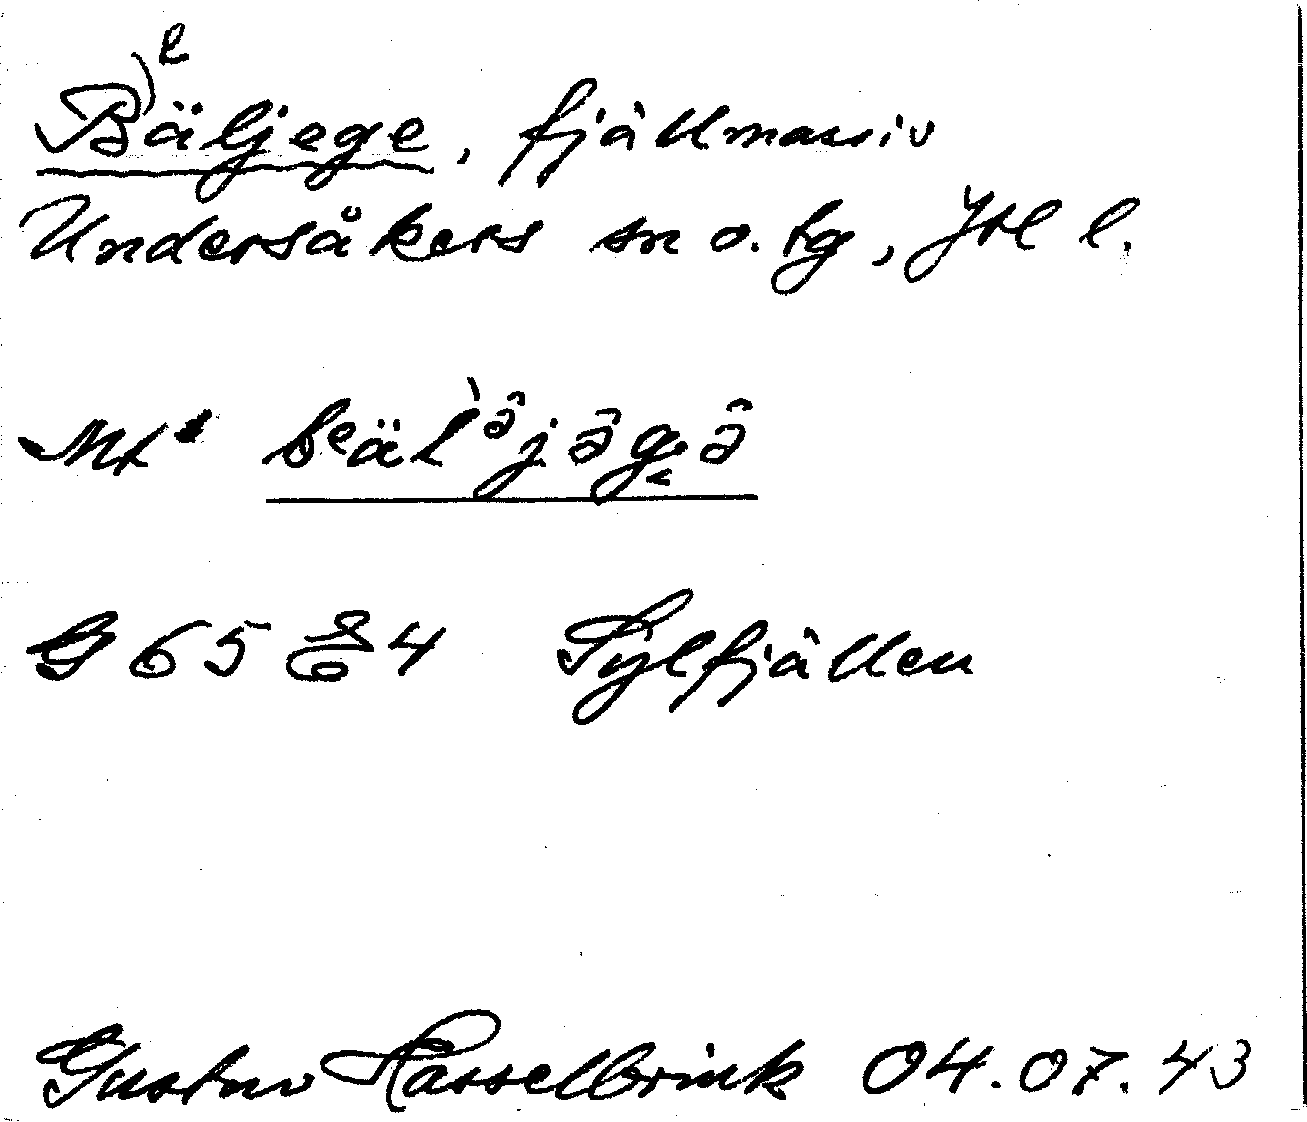 e
Bäljege, fjällmassiv
Undersåkers sn o. tg, Jtl l.
bᵉäl`ə̂jə̂gə̂
G 65 4 Sylfjällen
Gustav Hasselbrink 04.07.43